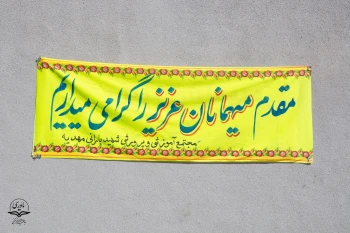 مقدم میهمانان عزیز را گرامی میداریم
مجتمع آموزشی و پرورشی شهید بارانی مهدیه